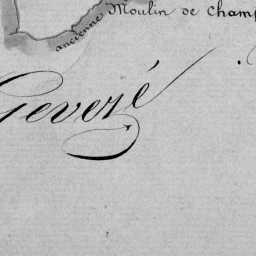 Moulin de Champ
ancienne
Gevezé